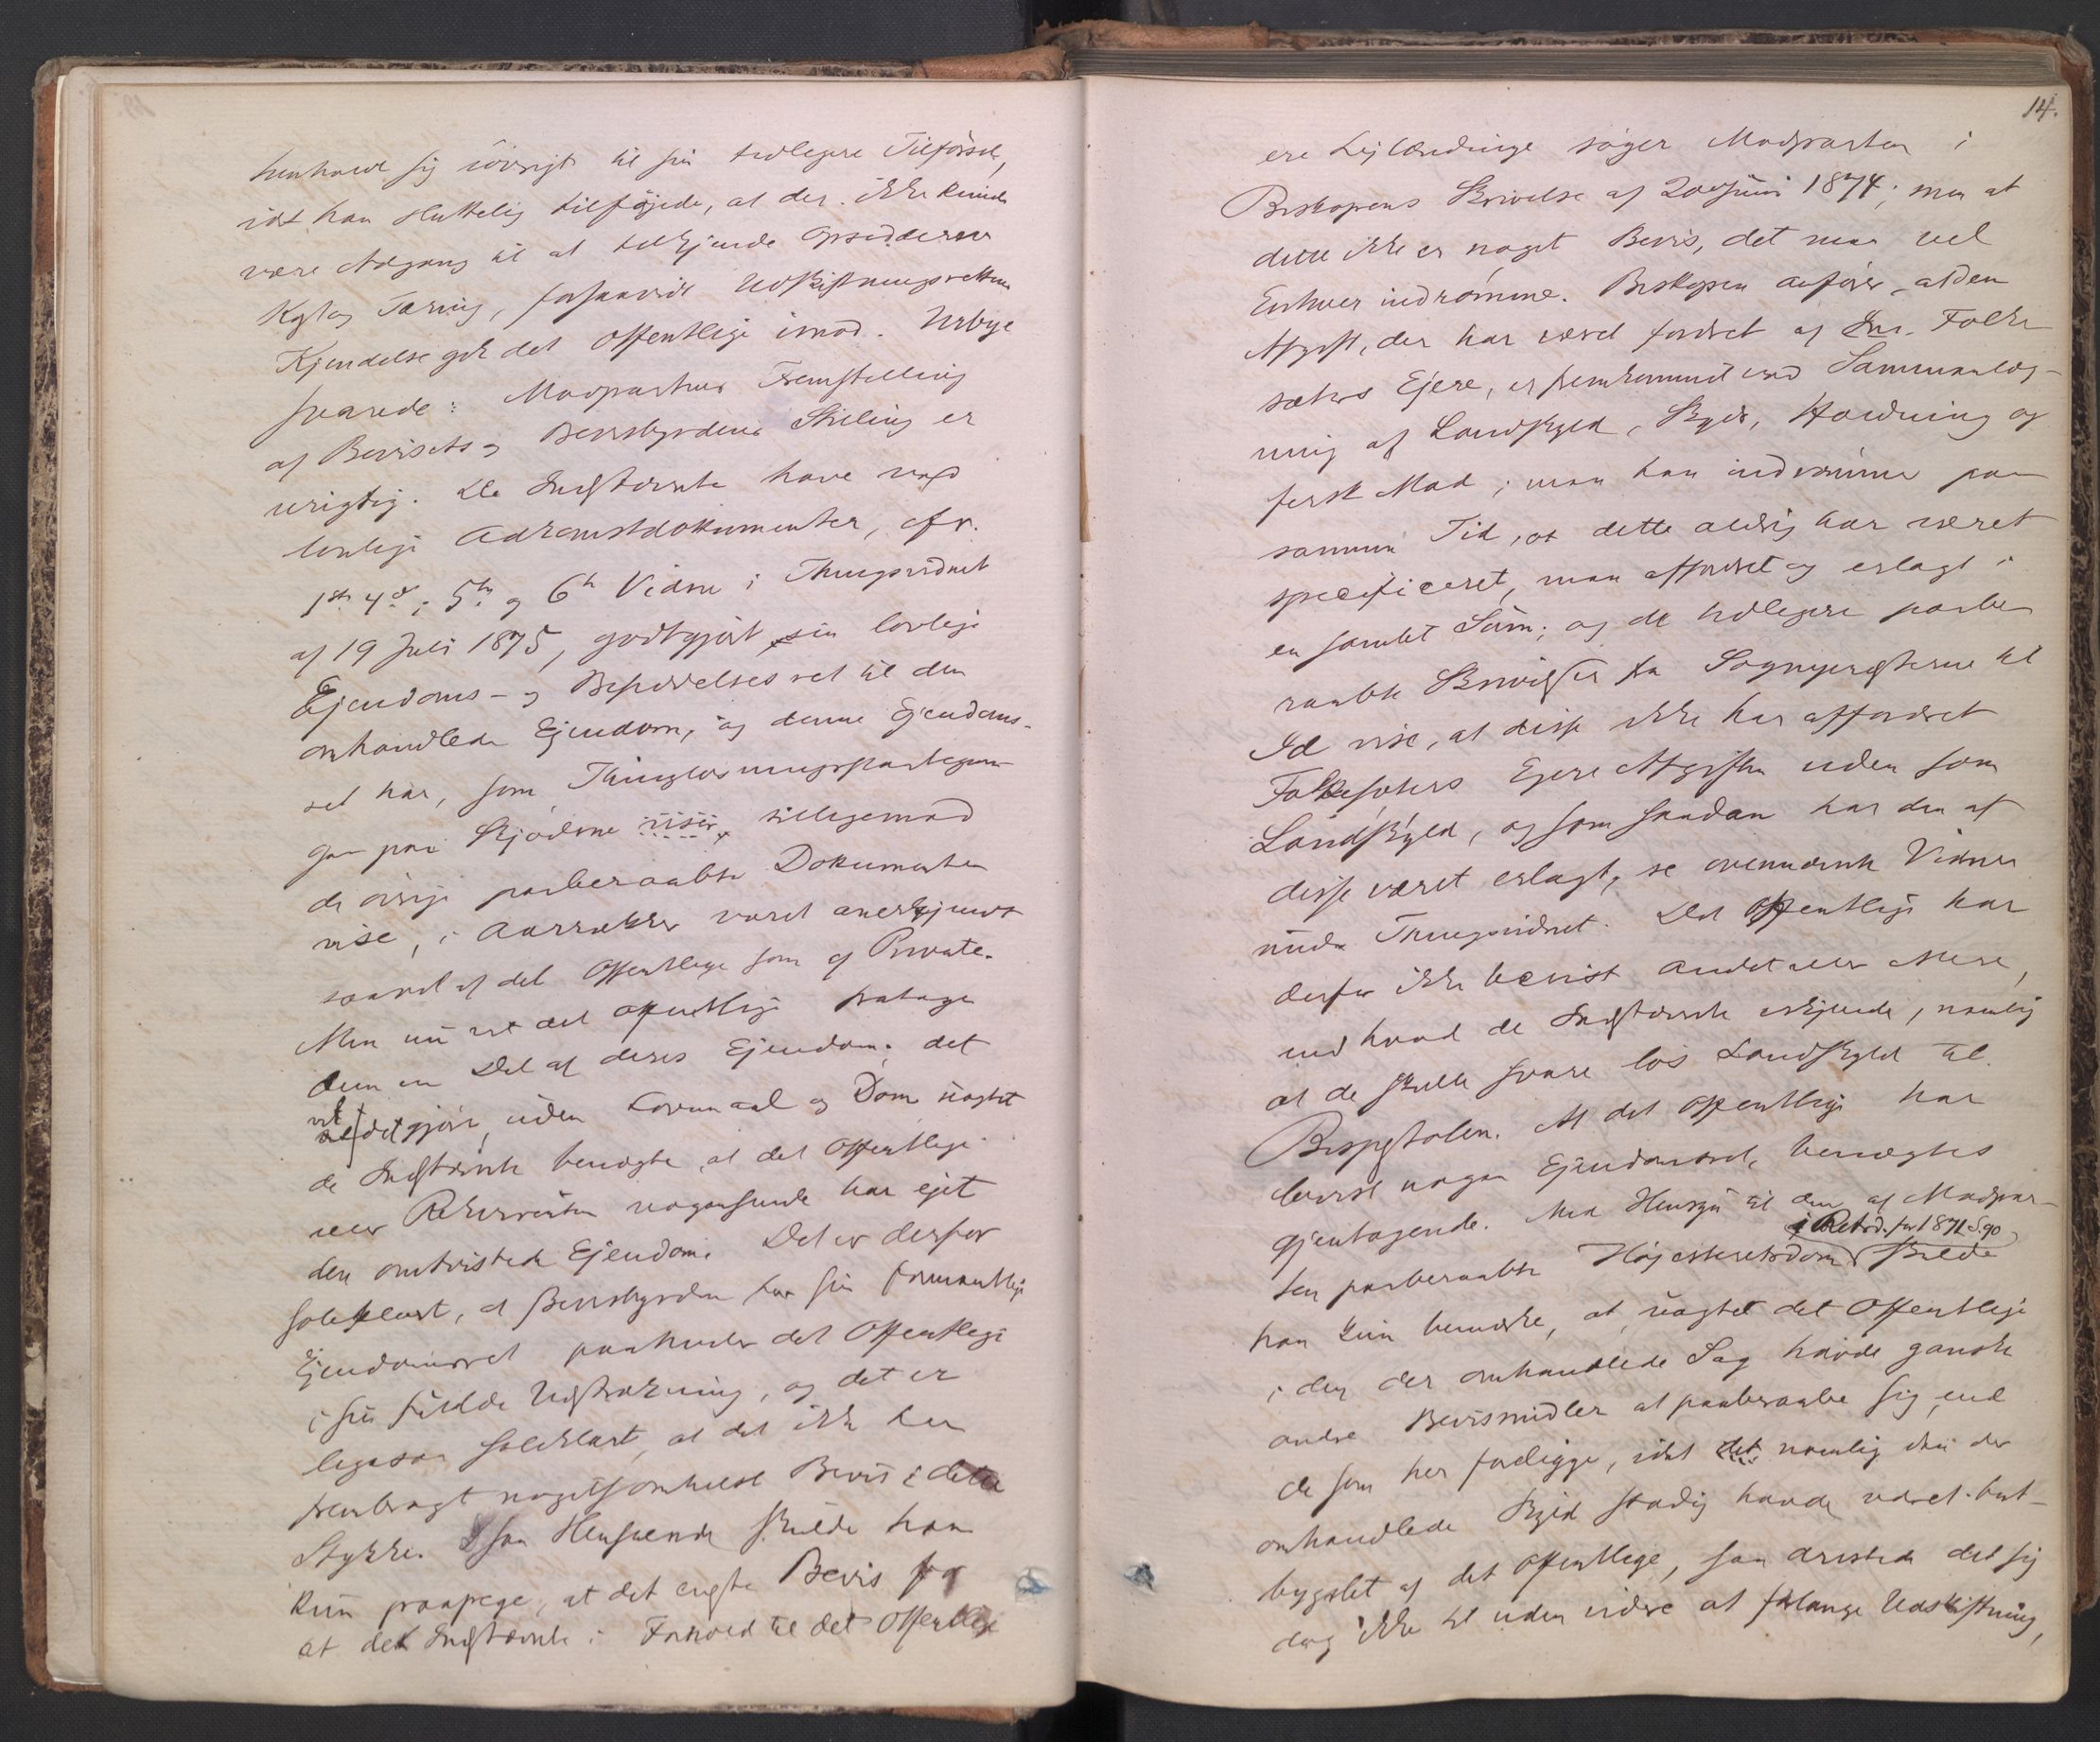 henholdt sig iövrigt til sin tidligere Tilförsel,
idet han sluttelig tilföjede, at der ikke kunde
være Adgang til at tilkjende Opsidderne
Kost og Tæring, forsaavidt Udskiftningsrettens
Kjendelse gik det Offentlige imod. Urbye
svarede: Modpartens Fremstilling
af Bevisets og Bevisbyrdens Stilling er
urigtig. De Indstævnte have ved
lovlige Adkomstdokumenter, cfr.
1ste, 4de, 5te og 6te Vidne i Thingsvidnet
af 19 Juli 1875, godtgjort sin lovlige
Ejendoms- og Besiddelsesret til den
omhandlede Ejendom, og denne Ejendoms-
ret har, som Thinglæsningspaategnin-
gen paa Skjöderne viser, tillegemed
de övrige paaberaabte Dokumenter
vise, i Aarrækker været anerkjendt
saavel af det Offentlige som af Private.
Men nu vil det Offentlige fratage
dem en Del af deres Ejendom; det
vil det gjöre uden Lovmaal og Dom uagtet
de Indstævnte benægte, at det Offentlige
eller Rekvirenten nogensinde har ejet
den omtvistede Ejendom. Det er derfor
soleklart, at Bevisbyrden for sin formentlige
Ejendomsret paahviler det Offentlige
i sin fulde Udstrækning, og det er
ligesaa soleklart, at det ikke har
frembragt nogetsomhelst Bevis i dette
Stykke. I saa Henseende skulde han
kun paapege, at det eneste Bevis for
at de Indstævnte i Forhold til det Offentlige
14.
ere Lejlændinge söger Modparten i
Biskopens Skrivelse af 20de Juni 1874; men at
dette ikke er noget Bevis, det maa vel
Enhver indrömme. Biskopen anförer, at den
Afgift, der har været fordret af Folke-
sæters Ejere, er fremkommet ved Sammenlæg-
ning af Landskyld, Skyds, Holdning og
fersk Mad; men han indrömmer paa
samme Tid, at dette aldrig har været
specificeret, men affordret og erlagt i
en samlet Sum; og de tidligere paabe-
raabte Skrivelser fra Sognepresterne til
Id vise, at disse ikke har affordret
Folkesæters Ejere Afgiften uden som
Landskyld, og som saadan har den af
disse været erlagt, se ovennævnte Vidner
under Thingsvidnet. Det Offentlige har
derfor ikke bevist Andet eller Mere,
end hvad de Indstævnte erkjende, nemlig
at de skulle svare lös Landskyld til
Bispestolen. At det Offentlige har
bevist nogen Ejendomsret, benægtes
gjentagende. Med Hensyn til den af Modpar-
i Retst. for 1871 S. 90
ten paaberaabte Höjesteretsdom skulde
han kun bemærke, at uagtet det Offentlige
i den der omhandlede Sag havde ganske
andre Bevismidler at paaberaabe sig, end
de som her foreligge, idet det nemlig den der
omhandlede Skyld stadig havde været bort-
bygslet af det Offentlige, saa dristede det sig
dog ikke til uden videre at forlange Udskiftning,